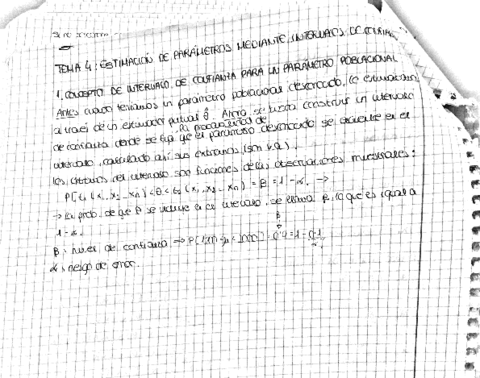 TEMA 4: ESTIMACIÓN DE PARÁMETROS MEDIANTE INTERVALOS DE
1. CONCEPTO DE INTERVALO DE CONFIANZA PARA UN PARÁMETRO POBLACIONAL
Antes cuando teníamos un parámetro poblacional desconocido, lo estimábamos
a través de un estimador puntual θ̂. Ahora, se trata construir un intervalo
de confianza donde se fija que el parámetro desconocido se encuentre en el
la probabilidad de
intervalo, calculando así sus extremos (son v.a).
los extremos del intervalo son funciones de las observaciones muestrales:
P[t₁(x₁, x₂ ... xn) < θ < t₂(x₁, x₂ ... xn)] = β = 1 - α. →
→ La prob. de que θ se incluya en el intervalo, se llama β, lo que es igual a
1 - α.
β: nivel de confianza → = 0'9 = 1 - 0'1
α: riesgo de error.